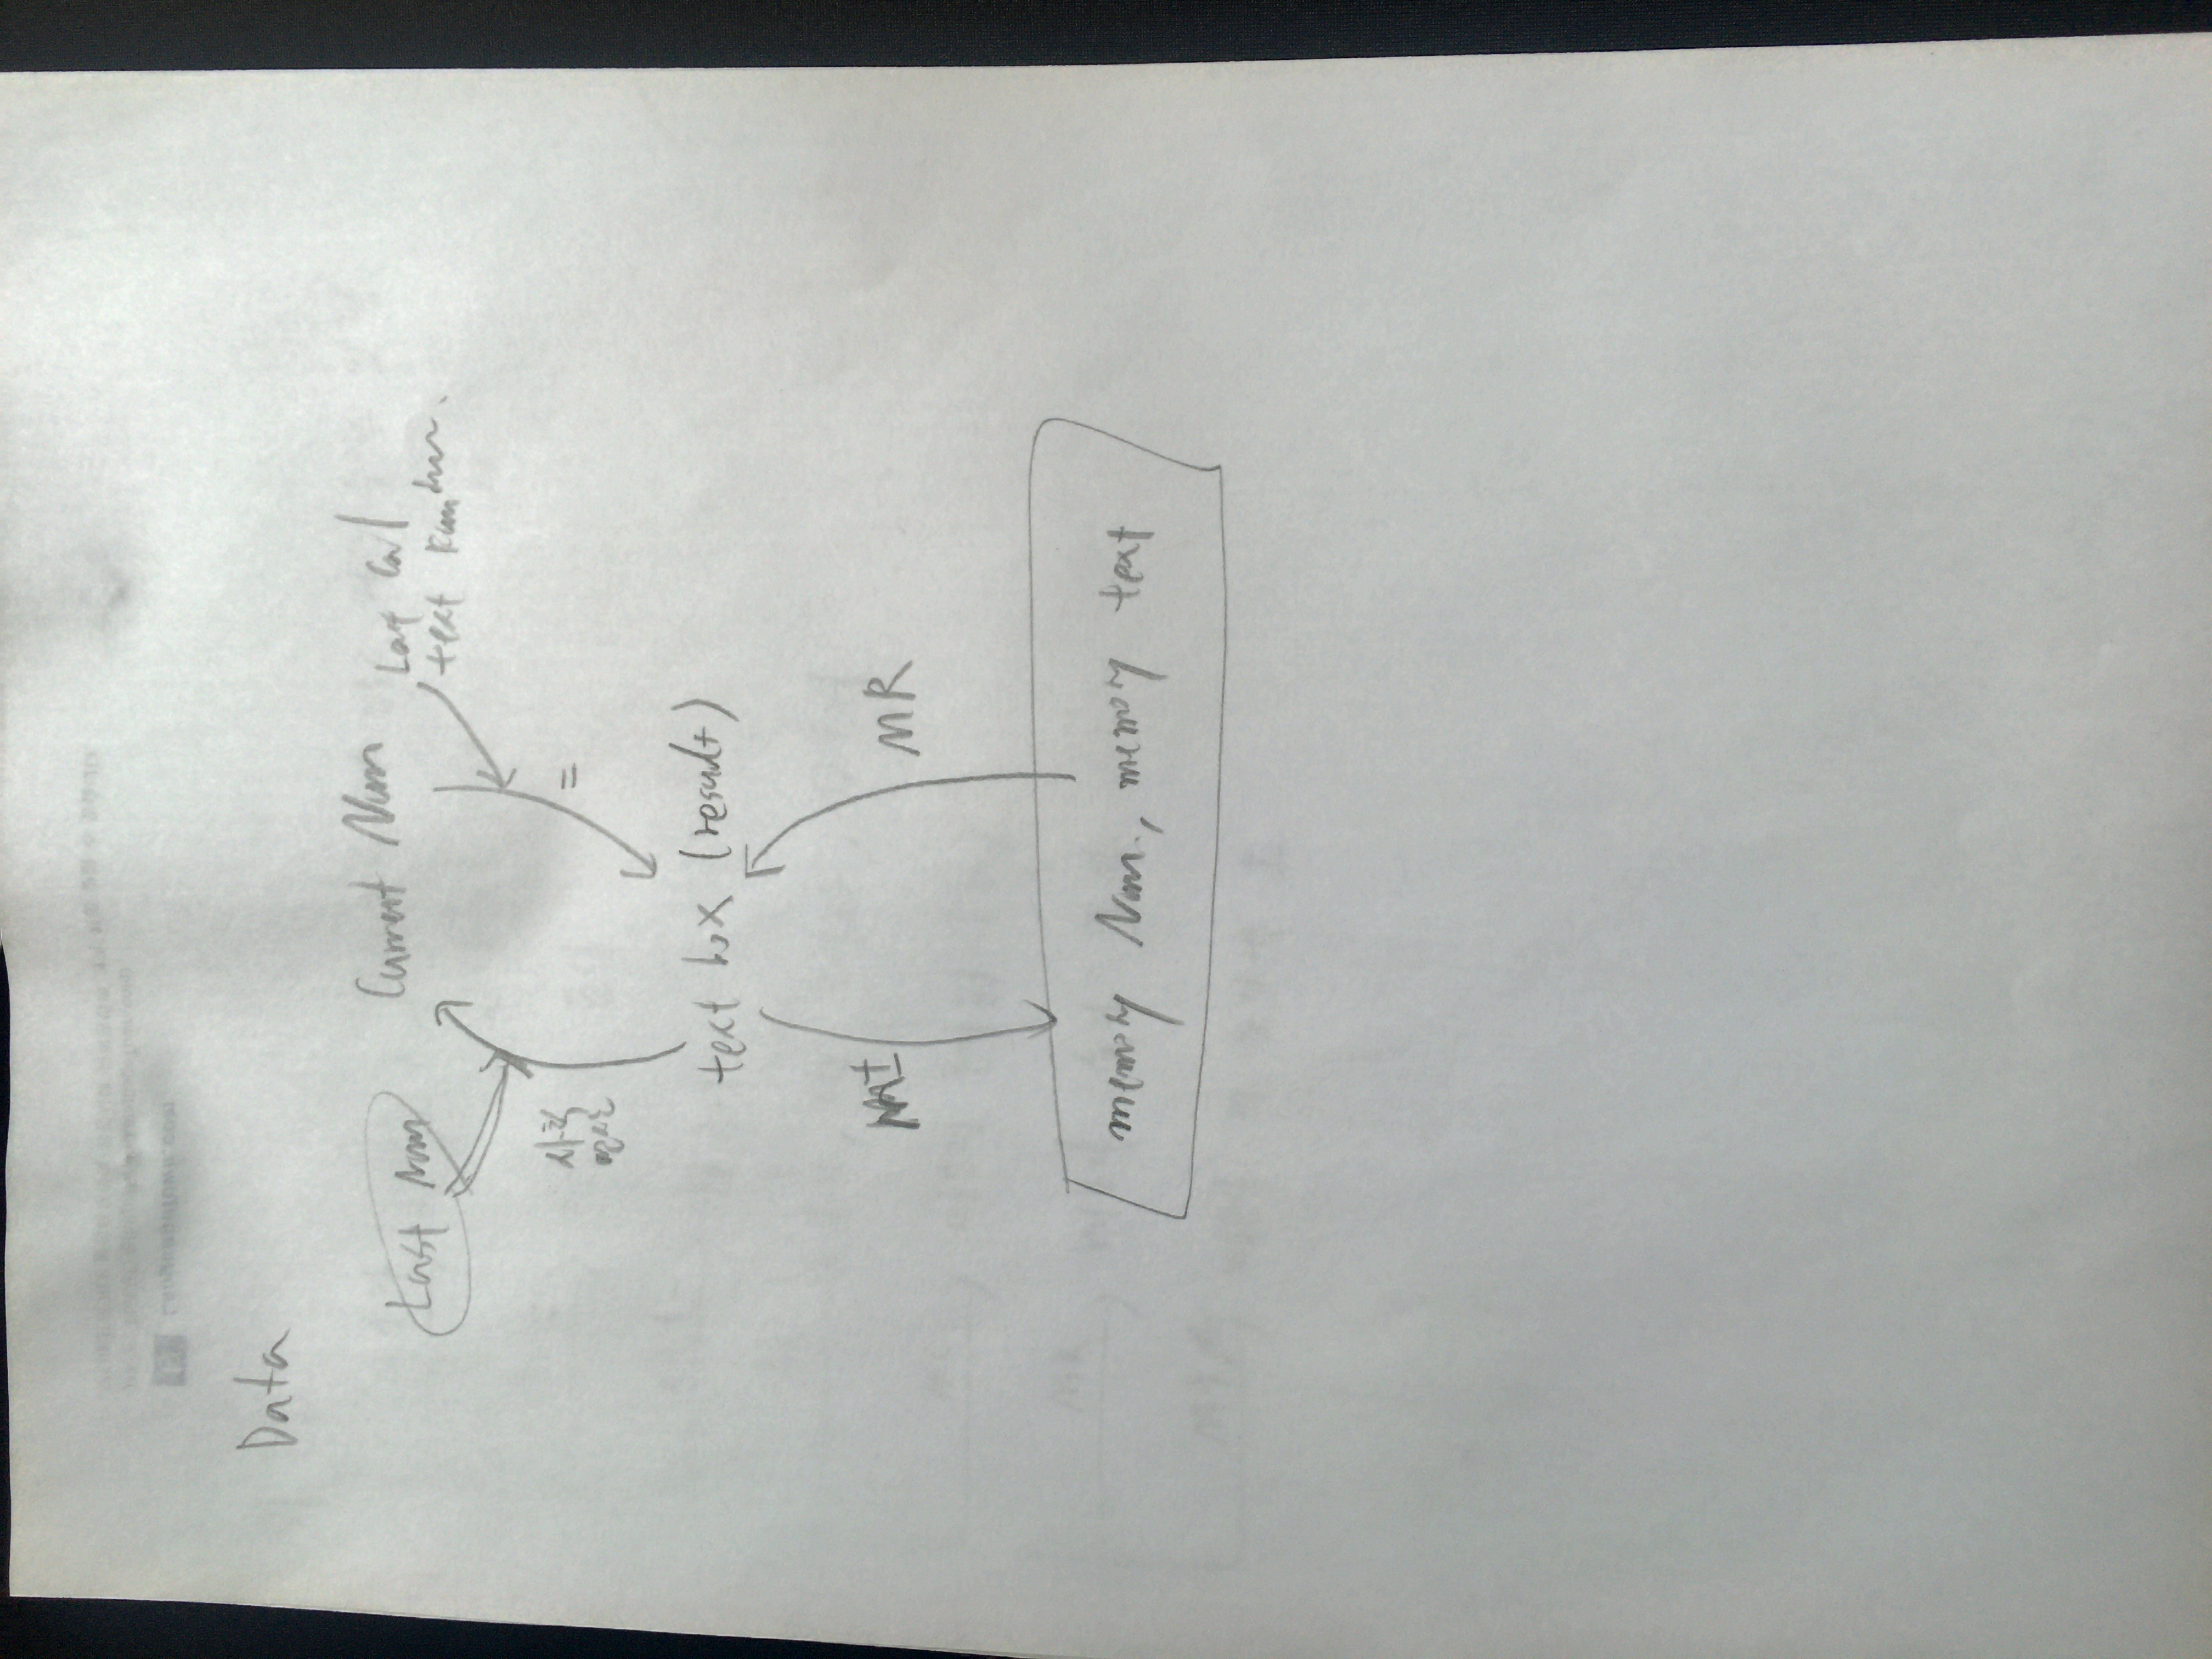 Data
Last Num
Current Num
Last Cal
text
사칙
연산
=
text box (result)
M±
MR
memory Num., memory text